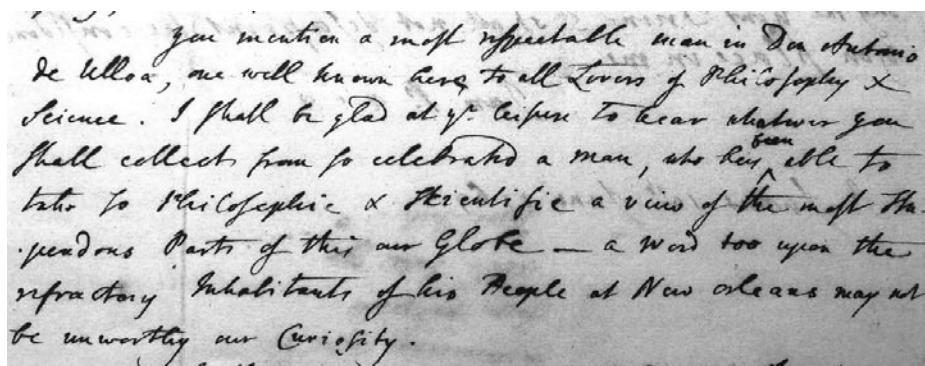 you mention a most respectable man in Don Antonio
de Ulloa, one well known here, to all Lovers of Philosophy &
Science. I shall be glad at yr. leisure to hear whatever you
shall collect from so celebrated a man, who has been able to
take so Philosophic & Scientific a view of the most Stu-
-pendous Parts of this our Globe — a word too upon the
refractory Inhabitants of his People at New Orleans may not
be unworthy our Curiosity.